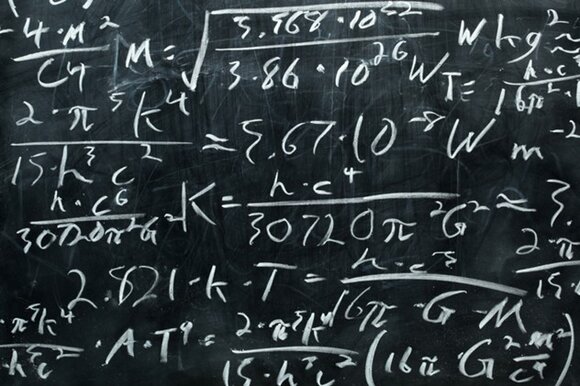 4·M² / C4 M = √(3.568·10²² / 3.86·10²⁶ W) W kg² ≈
T = h·c / 16π²·
2·π⁵k⁴ / 15·h³c² ≈ 5.67·10⁻⁸ W m⁻²
h·c⁶ / 30720π²G² K = h·c⁴ / 30720π²G² ≈ 3.
2.821·k·T = h·c³ / 16π·G·M 2·π / 15·
·π⁵k⁴ / h³c² ·A·T⁴ = 2·π⁵k⁴ / 15·h³c² (16π·G²·m² / c⁴)